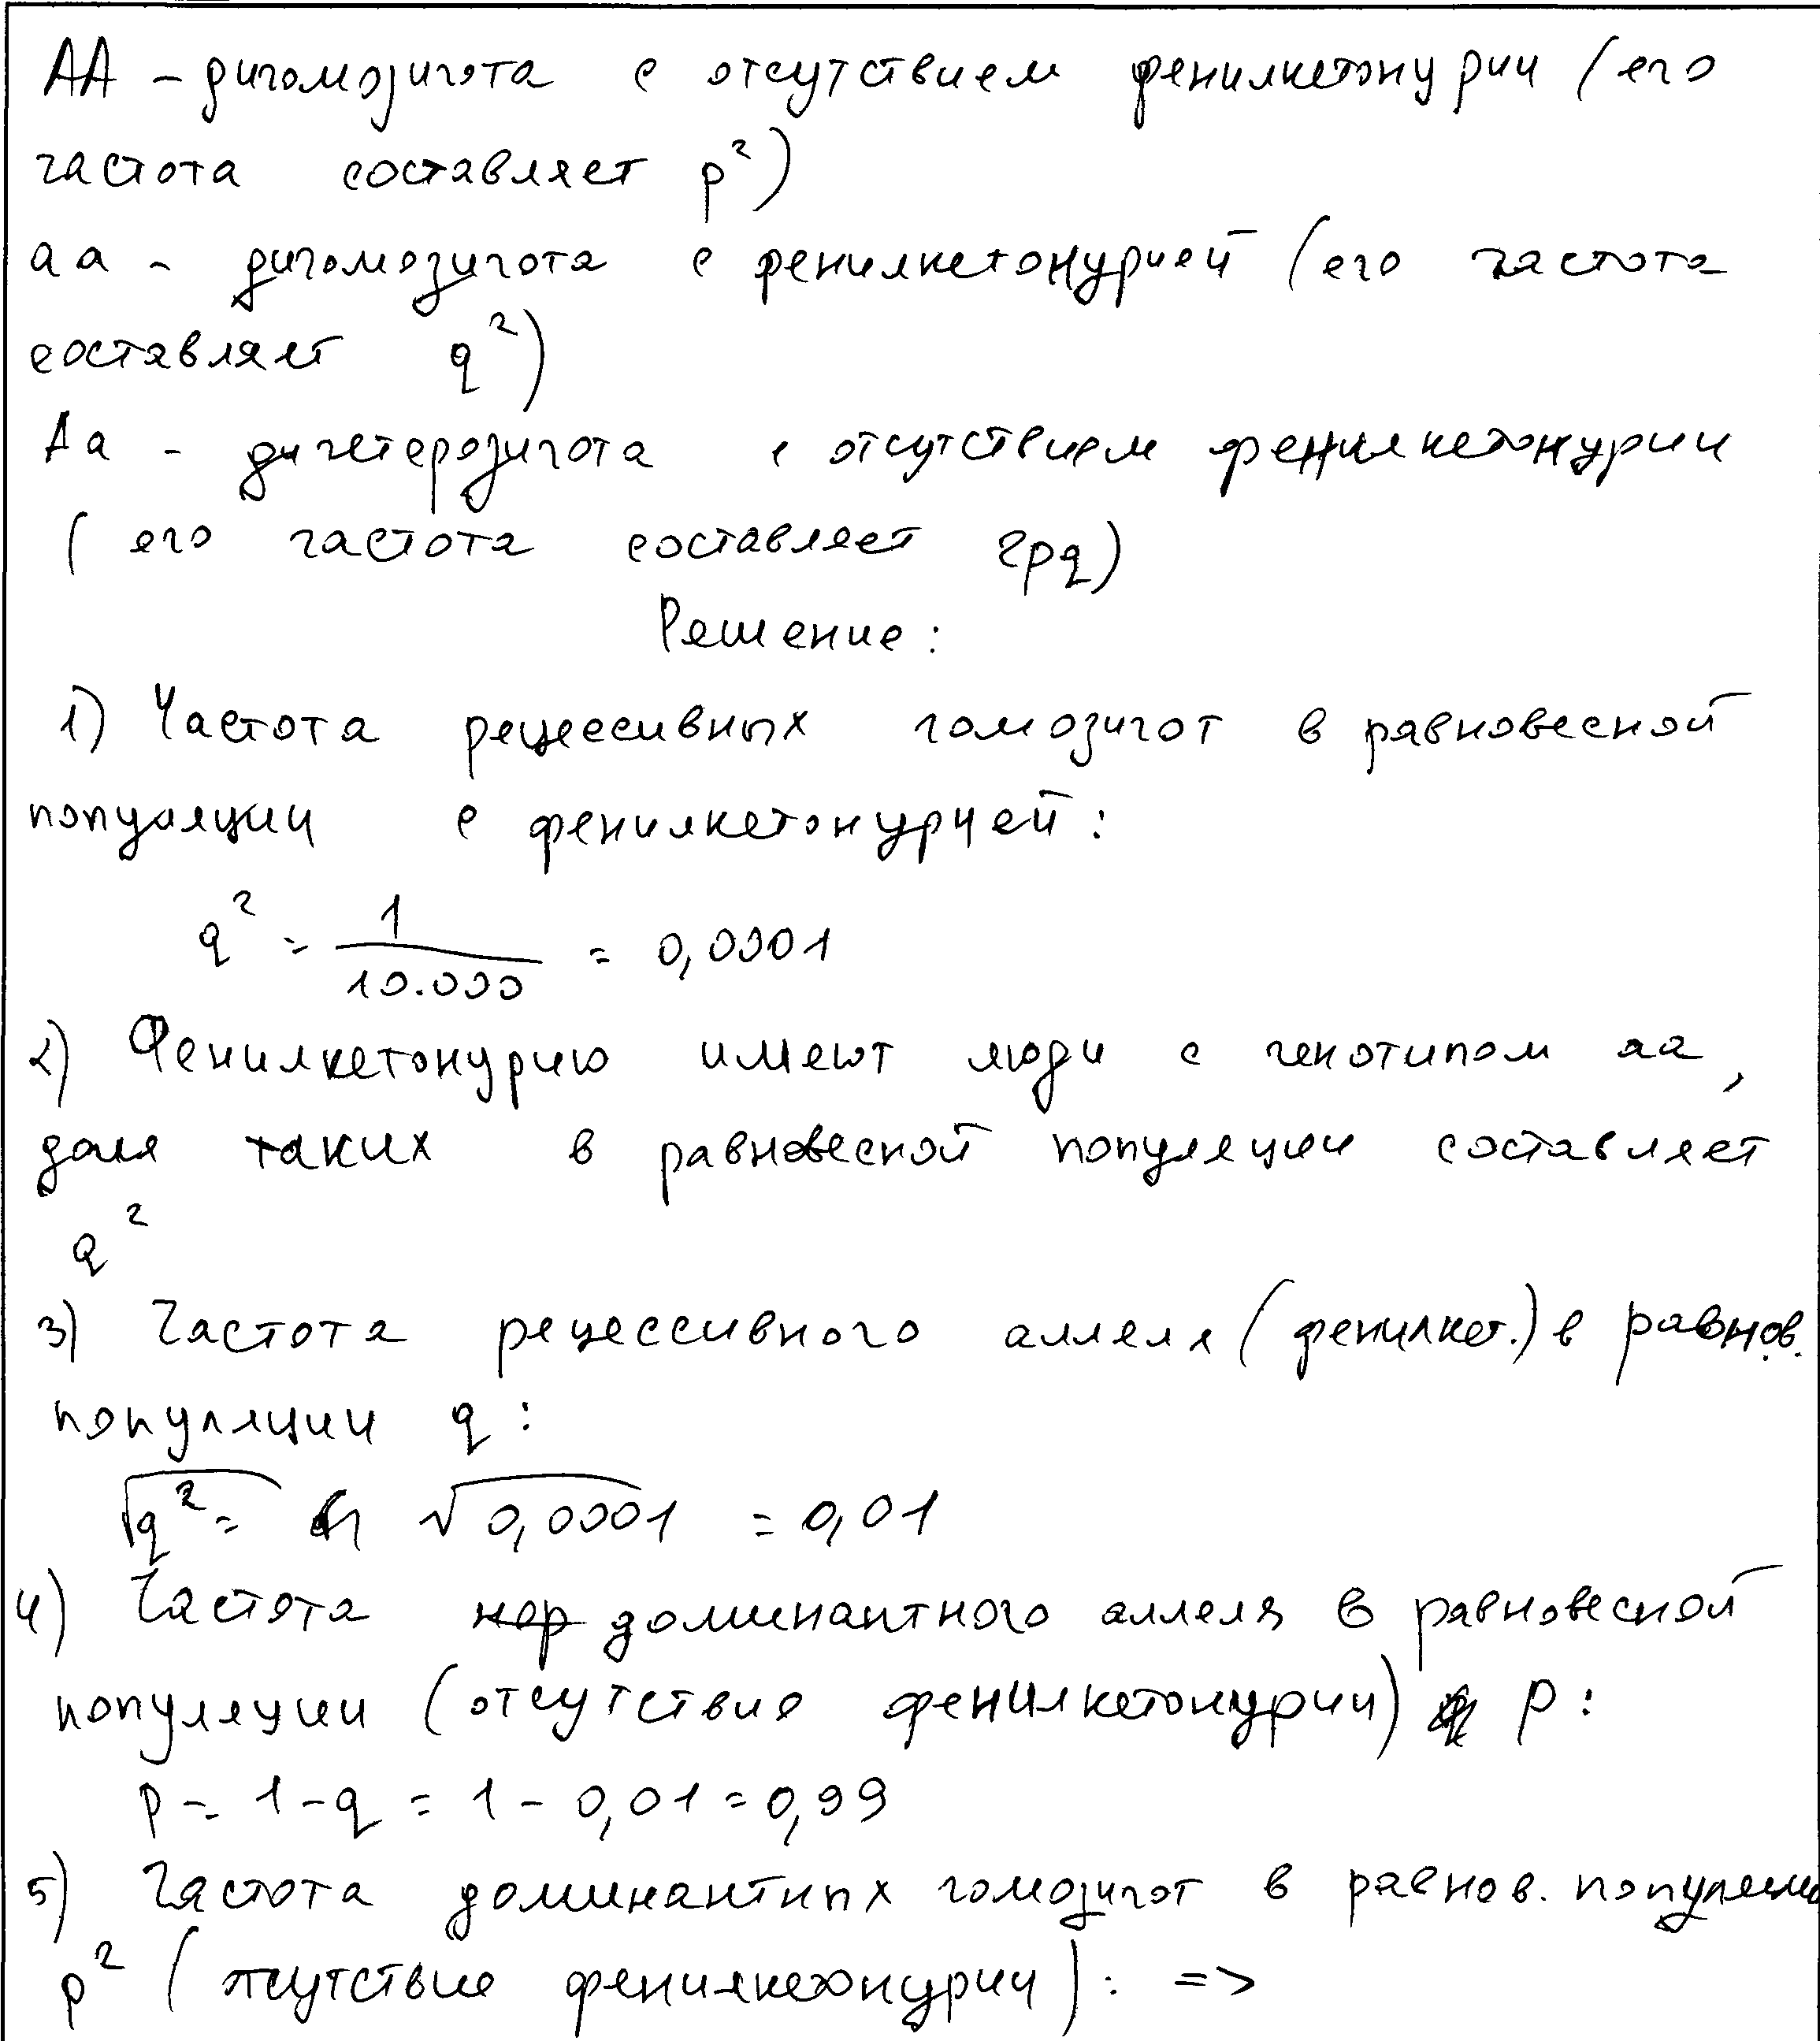 АА - дигомозигота с отсутствием фенилкетонурии (его
частота составляет p²)
аа - дигомозигота с фенилкетонурией (его частота
составляет q²)
Аа - дигетерозигота с отсутствием фенилкетонурии
(его частота составляет 2pq)
Решение:
1) Частота рецессивных гомозигот в равновесной
популяции с фенилкетонурией:
q² = 1/10.000 = 0,0001
2) Фенилкетонурию имеют люди с генотипом аа,
доля таких в равновесной популяции составляет
q²
3) Частота рецессивного аллеля (фенилкет.) в равнов.
популяции q:
√q² = √0,0001 = 0,01
4) Частота доминантного аллеля в равновесной
популяции (отсутствие фенилкетонурии) p:
p = 1-q = 1-0,01 = 0,99
5) Частота доминантных гомозигот в равнов. популяции
p² (отсутствие фенилкетонурии): =>